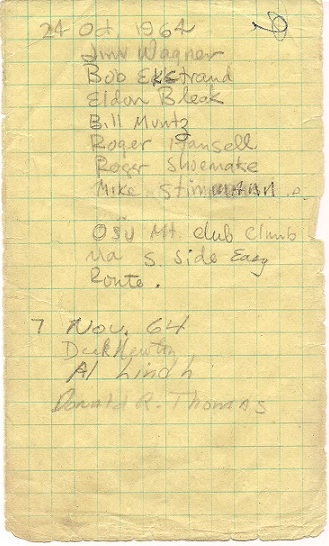 24 Oct 1964
Jim Wagner
Bob Ekstrand
Eldon Bleak
Bill Muntz
Roger Hansell
Roger Shoemake
Mike
OSU Mt. Club Climb
Via S. Side Easy
Route.
7 Nov. 64
Dick Newton
Al
Donald R. Thomas